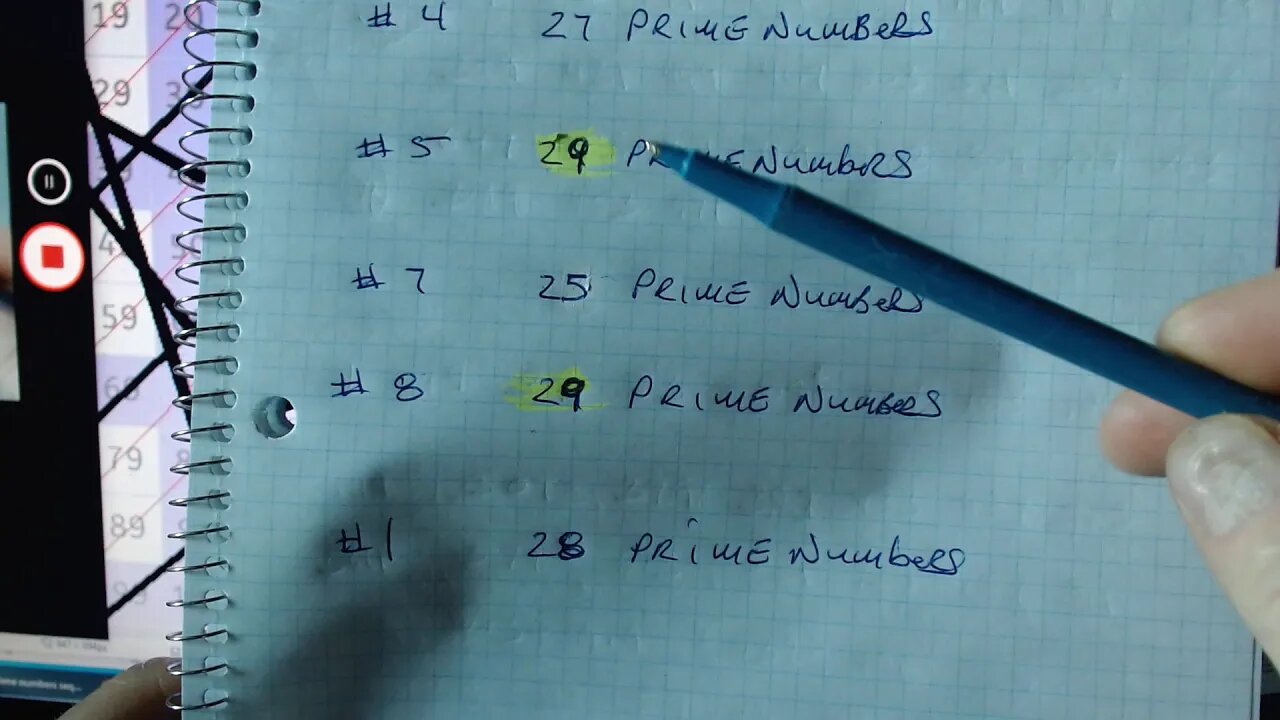 # 4 27 PRIME NumBERS
# 5 29 PRIME NumbRS
# 7 25 PRIME NumBeRS
# 8 29 PRIME NumBeRS
# 1 28 PRiME NumbeRS
19 20
29
59
79
89